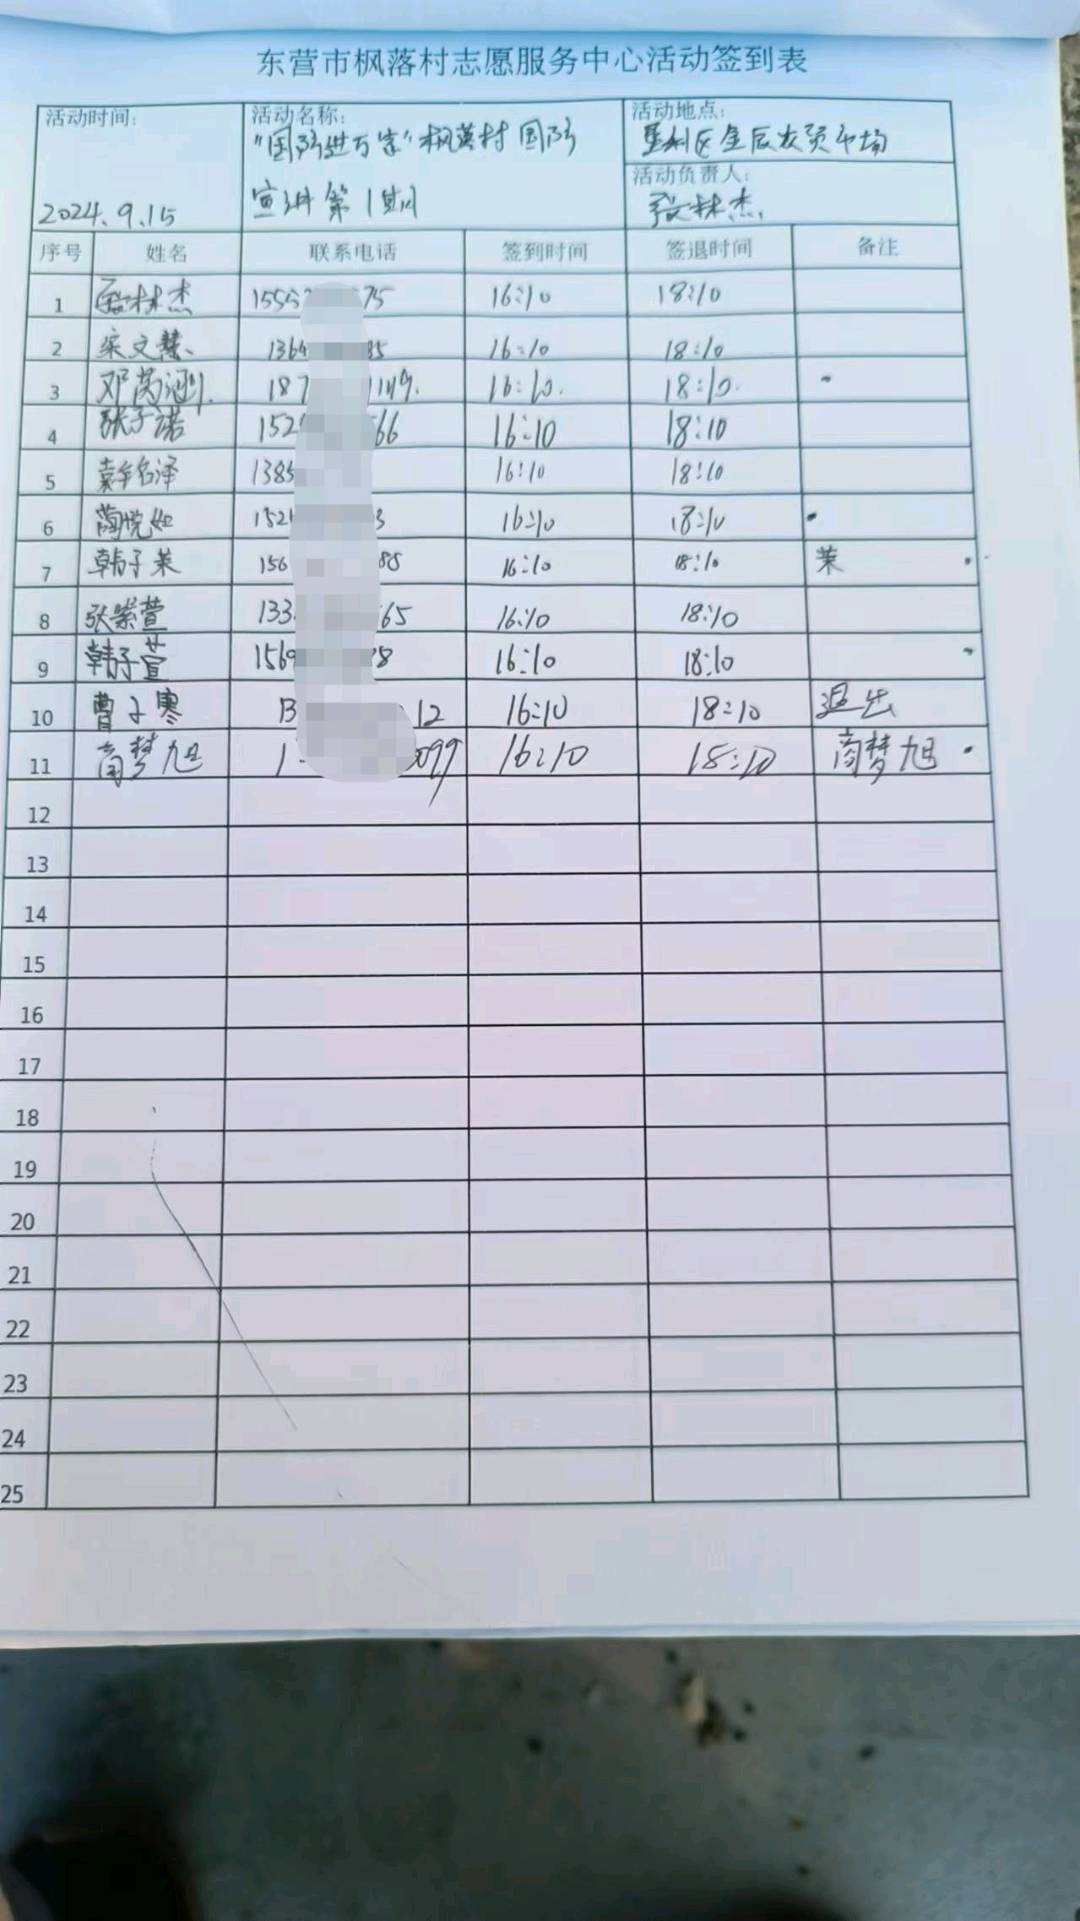 东营市枫落村志愿服务中心活动签到表
活动时间: 2024.9.15
活动名称: "国防进万家"枫落村国防
宣讲第1期
活动地点: 垦利区金辰农贸市场
活动负责人: 林杰
序号 姓名 联系电话 签到时间 签退时间 备注
1 林杰 155 75 16:10 18:10
2 宋文慧 136 35 16:10 18:10
3 邓 涵 187 16:10. 18:10.
4 张子诺 152 66 16:10 18:10
5 袁 名泽 1385 16:10 18:10
6 蔺悦如 152 3 16:10 18:10
7 韩子莱 156 88 16:10 18:10 莱
8 张紫萱 133 65 16:10 18:10
9 韩子萱 1569 8 16:10 18:10
10 曹子寒 13 12 16:10 18:10 退出
11 商梦旭 1 099 16:10 18:10 商梦旭
12
13
14
15
16
17
18
19
20
21
22
23
24
25